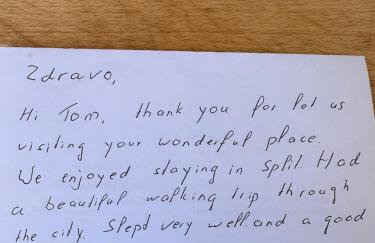 Zdravo,
Hi Tom, thank you for let us
visiting your wonderful place.
We enjoyed staying in Split. Had
a beautiful walking trip through
the city. Slept very well and a good